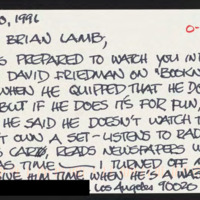 0, 1996
O-
BRIAN LAMB,
S PREPARED TO WATCH YOU INT
DAVID FRIEDMAN ON "BOOKN
WHEN HE QUIPPED THAT HE DO
BUT IF HE DOES IT'S FOR FUN,
HE SAID HE DOESN'T WATCH T
'T OWN A SET - LISTENS TO RAD
CAR, READS NEWSPAPERS W
AS TIME — I TURNED OFF
IVE HIM TIME WHEN HE'S A WAS
Los Angeles 90020